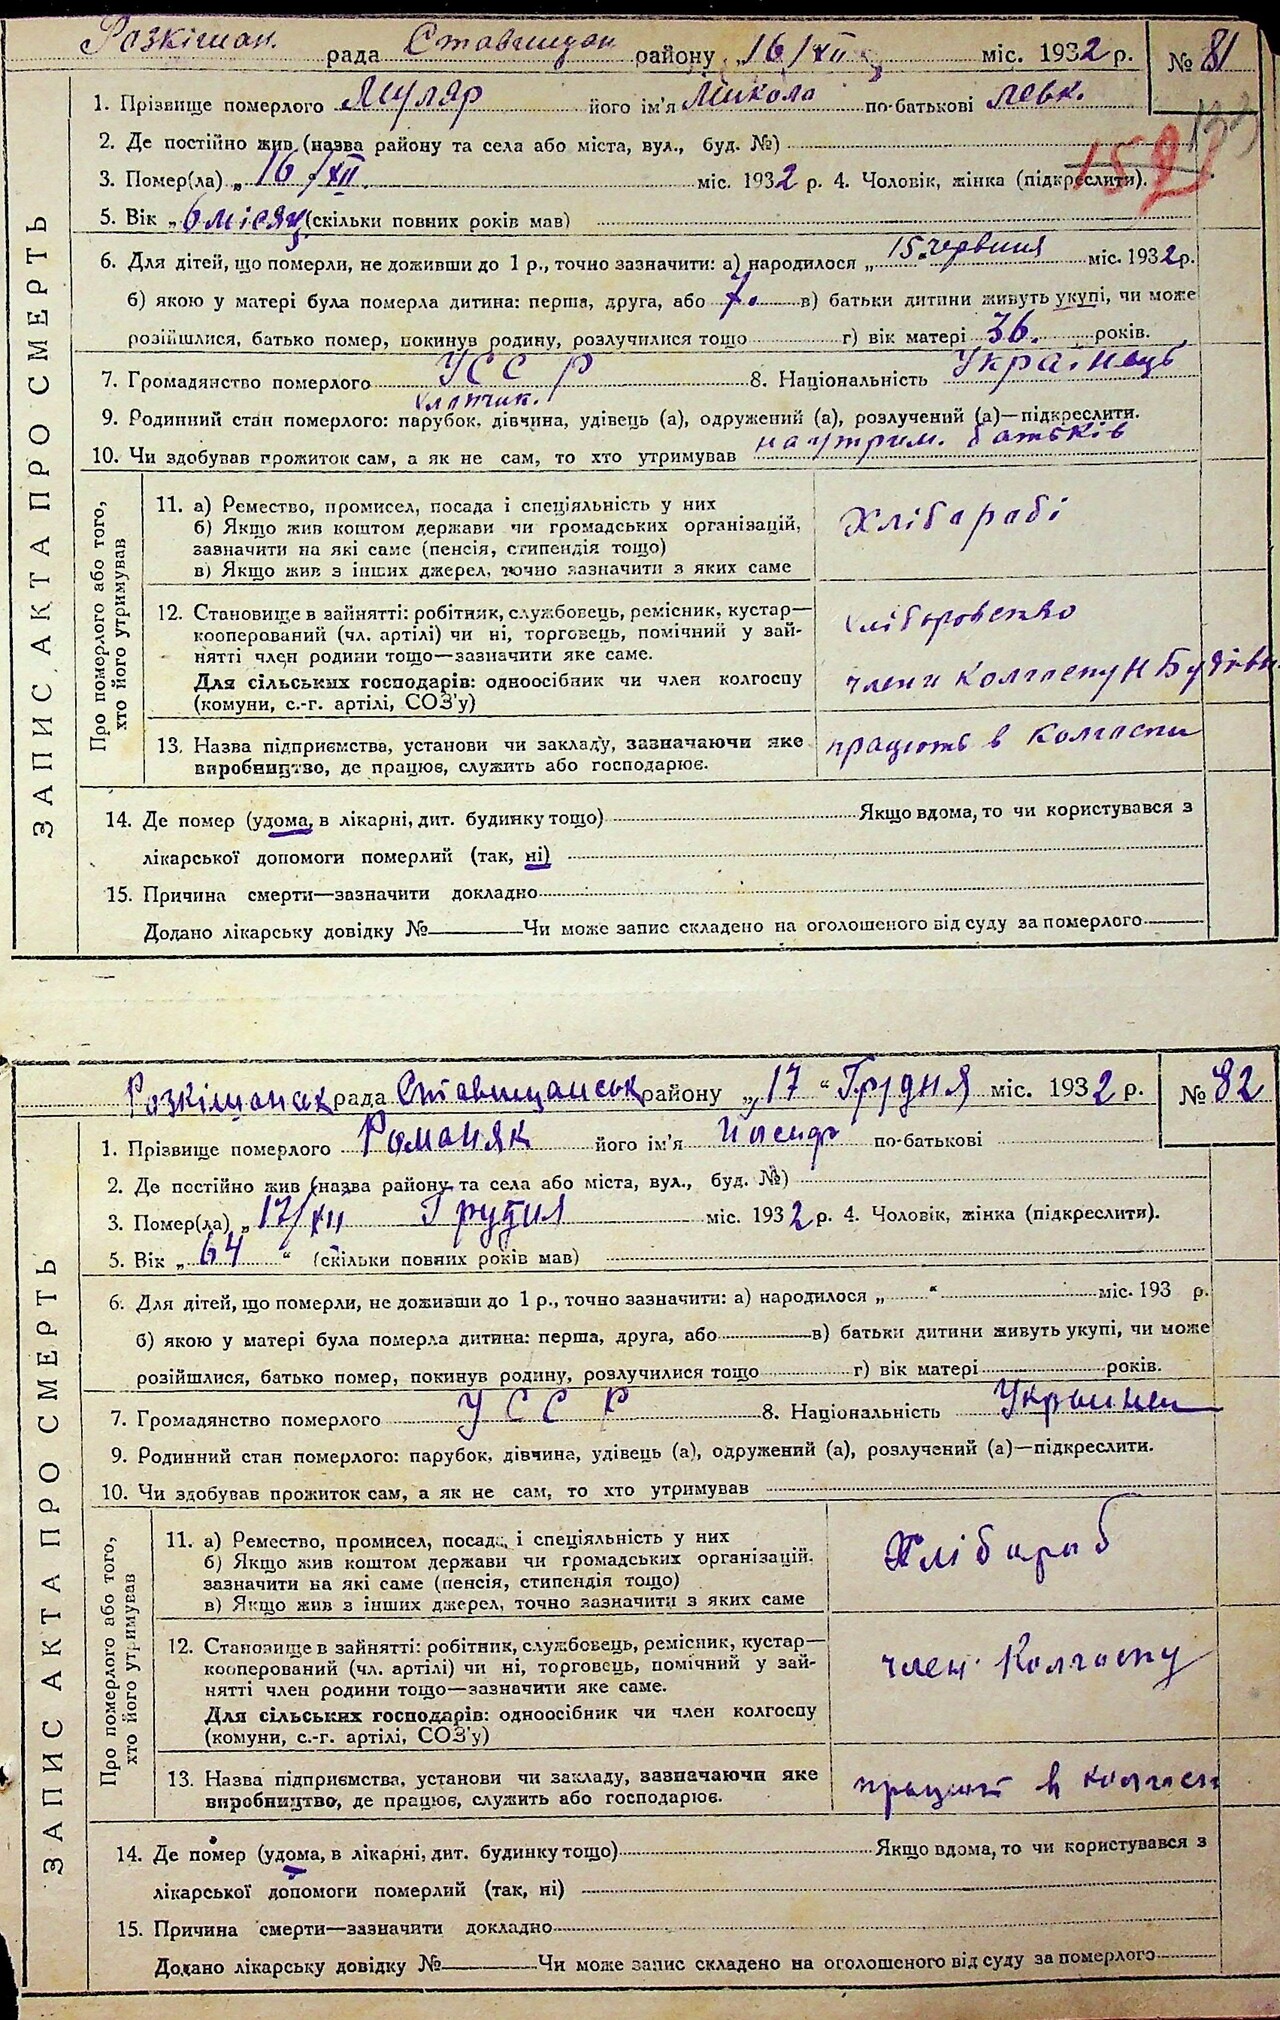 Розкішан. рада Ставищан района „16/XII міс. 1932 р. № 81
1. Прізвище померлого Муляр його ім'я Микола по-батькові Левк.
2. Де постійно жив (назва району та села або міста, вул., буд. №)
152
3. Помер(ла) „16/XII. міс. 1932 р. 4. Чоловік, жінка (підкреслити).
5. Вік „6 місяц (скільки повних років мав)
6. Для дітей, що померли, не доживши до 1 р., точно зазначити: а) народилося „15. червиня міс. 1932 р.
б) якою у матері була померла дитина: перша, друга, або 7. в) батьки дитини живуть укупі, чи може
розійшлися, батько помер, покинув родину, розлучилися тощо г) вік матері 36. років.
7. Громадянство померлого УССР 8. Національність Українець
хлопчик.
9. Родинний стан померлого: парубок, дівчина, удівець (а), одружений (а), розлучений (а)—підкреслити.
10. Чи здобував прожиток сам, а як не сам, то хто утримував на утрим. батьків
ЗАПИС АКТА ПРО СМЕРТЬ
Про померлого або того,
хто його утримував
11. а) Ремество, промисел, посада і спеціяльність у них
б) Якщо жив коштом держави чи громадських організацій,
зазначити на які саме (пенсія, стипендія тощо)
в) Якщо жив з інших джерел, точно зазначити з яких саме
Хлібаробі
12. Становище в зайнятті: робітник, службовець, ремісник, кустар—
кооперований (чл. артілі) чи ні, торговець, помічний у зай-
нятті член родини тощо—зазначити яке саме.
Для сільських господарів: одноосібник чи член колгоспу
(комуни, с.-г. артілі, СОЗ'у)
члени Колгоспу
13. Назва підприємства, установи чи закладу, зазначаючи яке
виробництво, де працює, служить або господарює.
працють в Колгоспи
14. Де помер (удома, в лікарні, дит. будинку тощо) Якщо вдома, то чи користувався з
лікарської допомоги померлий (так, ні)
15. Причина смерти—зазначити докладно
Додано лікарську довідку № Чи може запис складено на оголошеного від суду за померлого
Розкішанск рада Ставищанськ району „17 “ Грудня міс. 1932 р. № 82
1. Прізвище померлого Романяк його ім'я Йосиф по-батькові
2. Де постійно жив (назва району та села або міста, вул., буд. №)
3. Помер(ла) „17/XII Грудня міс. 1932 р. 4. Чоловік, жінка (підкреслити).
5. Вік „64“ (скільки повних років мав)
6. Для дітей, що померли, не доживши до 1 р., точно зазначити: а) народилося „ “ міс. 193 р.
б) якою у матері була померла дитина: перша, друга, або в) батьки дитини живуть укупі, чи може
розійшлися, батько помер, покинув родину, розлучилися тощо г) вік матері років.
7. Громадянство померлого УССР 8. Національність Украинец
9. Родинний стан померлого: парубок, дівчина, удівець (а), одружений (а), розлучений (а)—підкреслити.
10. Чи здобував прожиток сам, а як не сам, то хто утримував
ЗАПИС АКТА ПРО СМЕРТЬ
Про померлого або того,
хто його утримував
11. а) Ремество, промисел, посада і спеціяльність у них
б) Якщо жив коштом держави чи громадських організацій,
зазначити на які саме (пенсія, стипендія тощо)
в) Якщо жив з інших джерел, точно зазначити з яких саме
Хлібароб
12. Становище в зайнятті: робітник, службовець, ремісник, кустар—
кооперований (чл. артілі) чи ні, торговець, помічний у зай-
нятті член родини тощо—зазначити яке саме.
Для сільських господарів: одноосібник чи член колгоспу
(комуни, с.-г. артілі, СОЗ'у)
член Колгоспу
13. Назва підприємства, установи чи закладу, зазначаючи яке
виробництво, де працює, служить або господарює.
в колгосп
14. Де помер (удома, в лікарні, дит. будинку тощо) Якщо вдома, то чи користувався з
лікарської допомоги померлий (так, ні)
15. Причина смерти—зазначити докладно
Додано лікарську довідку № Чи може запис складено на оголошеного від суду за померлого